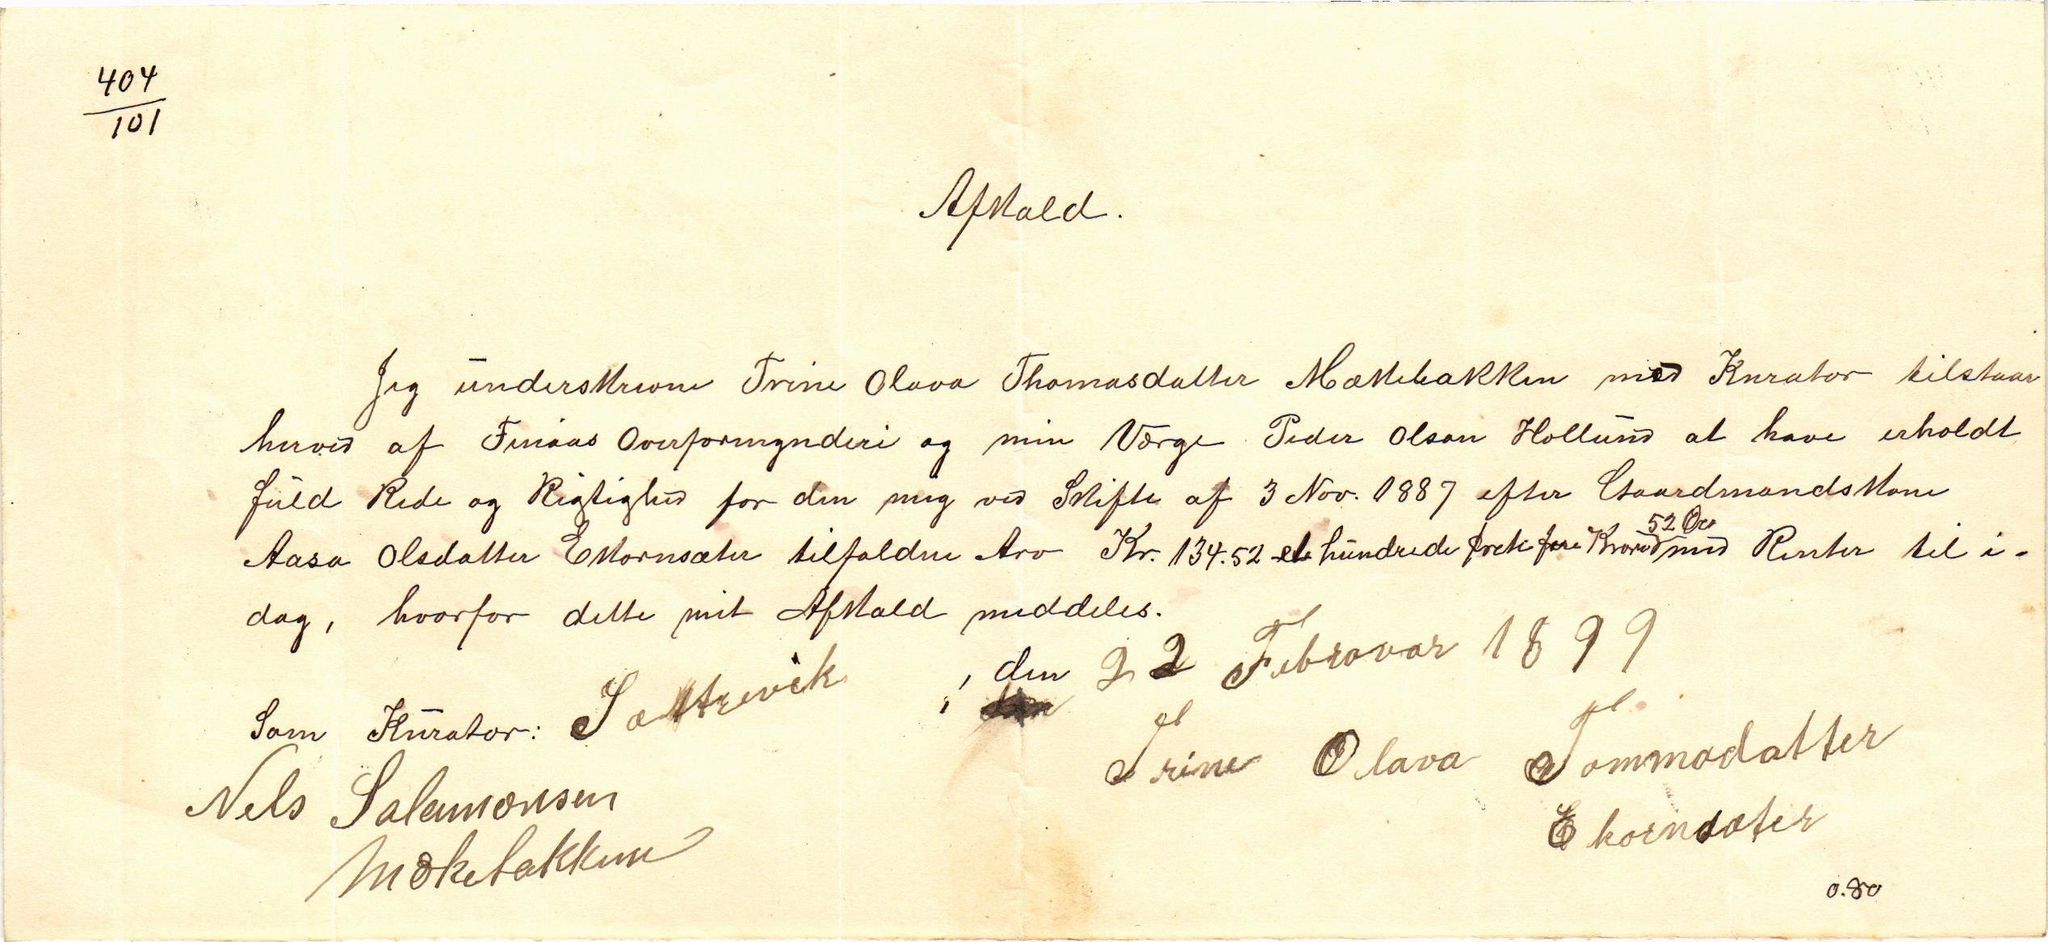 404
101
Afkald.
Jeg underskrevne Trine Olava Thomasdatter Mækkebakken med Kurator tilstaar
herved af Finaas Overformynderi og min Værge Peder Olson Hollund at have erholdt
fuld Rede og Rigtighed for den mig ved Skifte af 3 Nov. 1887 efter Gaardmandskone
Aasa Olsdatter Ekornsæter tilfaldne Arv Kr. 134.52 et hundrede treti fire Kroner 52 Øre med Renter til i-
dag, hvorfor dette mit Afkald meddeles.
Sætrevik, den 22 Februar 1899
Som Kurator:
Trine Olava Tommadatter
Nels Salamonsen
Ekornsæter
Mækebakken
0.80